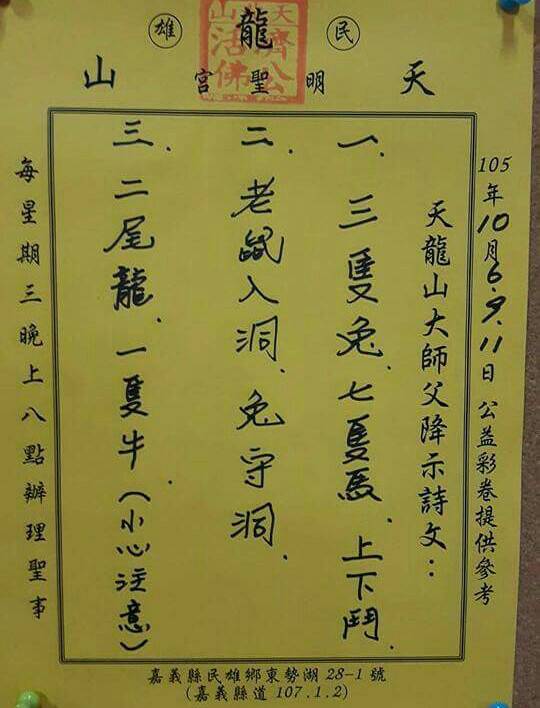 民 龍 雄
天 明聖宮 山
濟公
活佛
105年10月6.9.11日 公益彩卷提供參考
天龍山大師父降示詩文：
一、三隻兔、七隻馬、上下鬥、
二、老鼠入洞、兔守洞、
三、二尾龍、一隻牛（小心注意）
每星期三晚上八點辦理聖事
嘉義縣民雄鄉東勢湖28-1號
(嘉義縣道107.1.2)